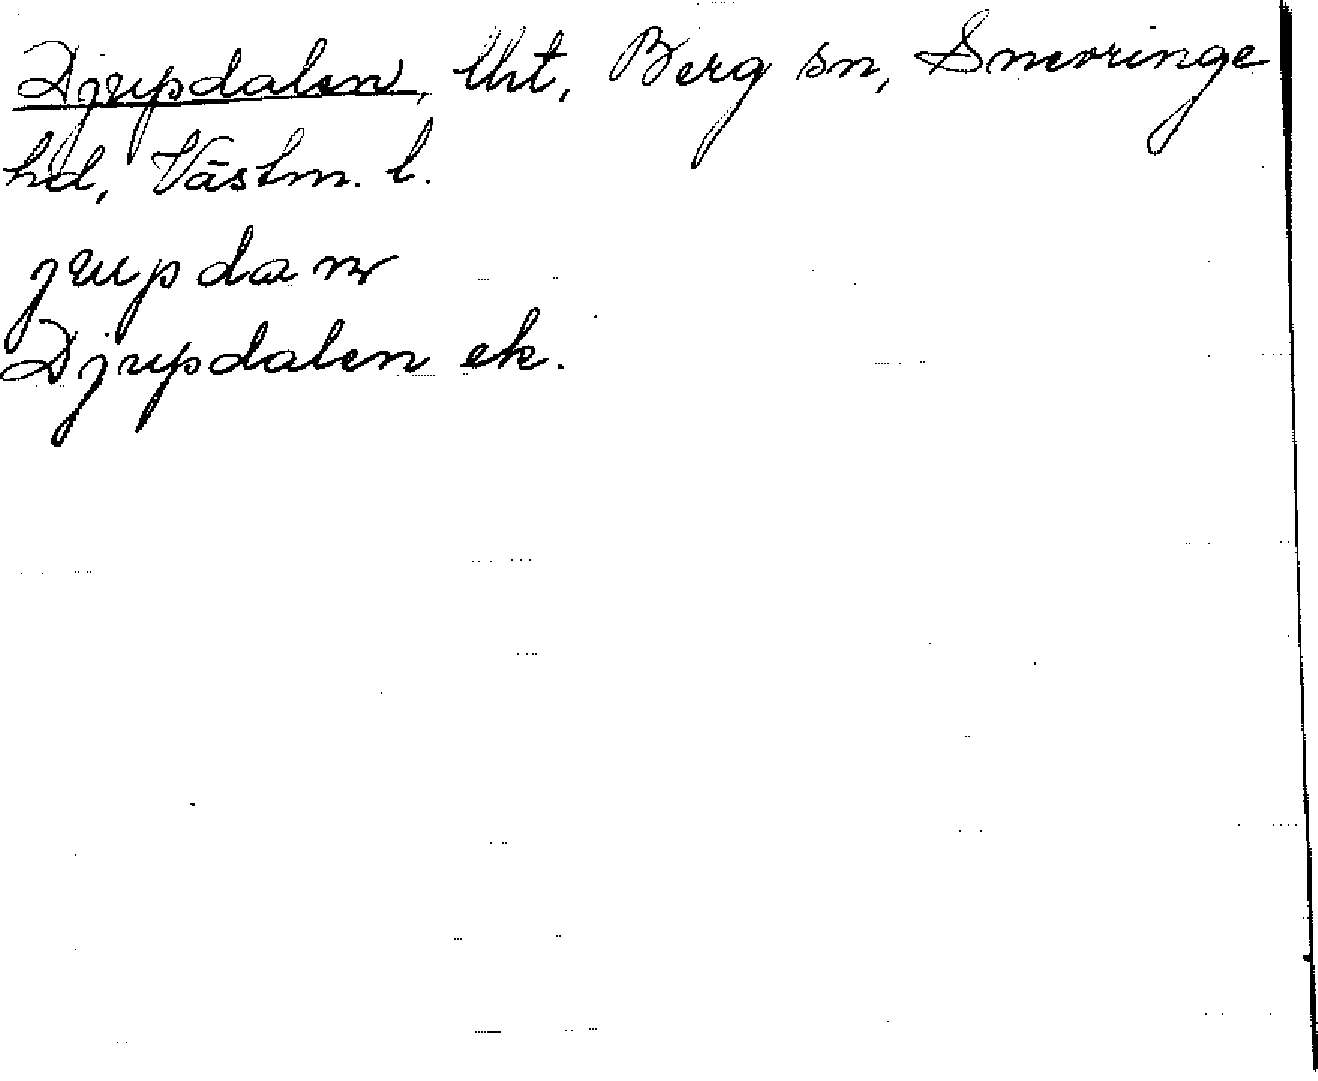 Djupdalen, lht, Berg sn, Snevringe
hd, Västm. l.
Djupdalen ek.